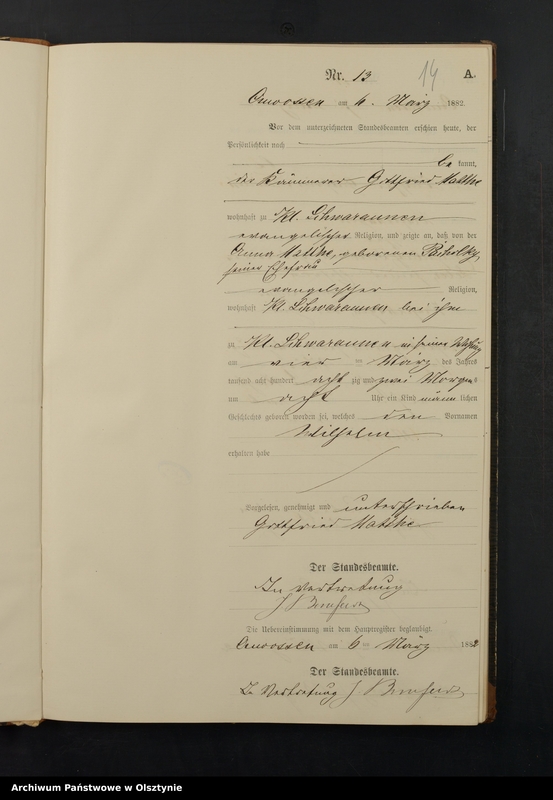 Nr. 13
14
A.
Omoossen am 6. März 1882.
Vor dem unterzeichneten Standesbeamten erschien heute, der
Persönlichkeit nach
be kannt,
der Kämmerer Gottfried Matthe
wohnhaft zu Kl. Schwaraunen
evangelischer Religion, und zeigte an, daß von der
Anna Matthe, geborenen
seiner Ehefrau
evangelischer Religion,
wohnhaft Kl. Schwaraunen bei ihm
zu Kl. Schwaraunen in seiner
am vier ten März des Jahres
tausend acht hundert acht zig und zwei Morgens
um acht Uhr ein Kind männ lichen
Geschlechts geboren worden sei, welches den Vornamen
Wilhelm
erhalten habe
Vorgelesen, genehmigt und unterschrieben
Gottfried Matthe
Der Standesbeamte.
In Vertretung
Die Uebereinstimmung mit dem Hauptregister beglaubigt.
Omoossen am 6 ten März 1882
Der Standesbeamte.
In Vertretung
Archiwum Państwowe w Olsztynie